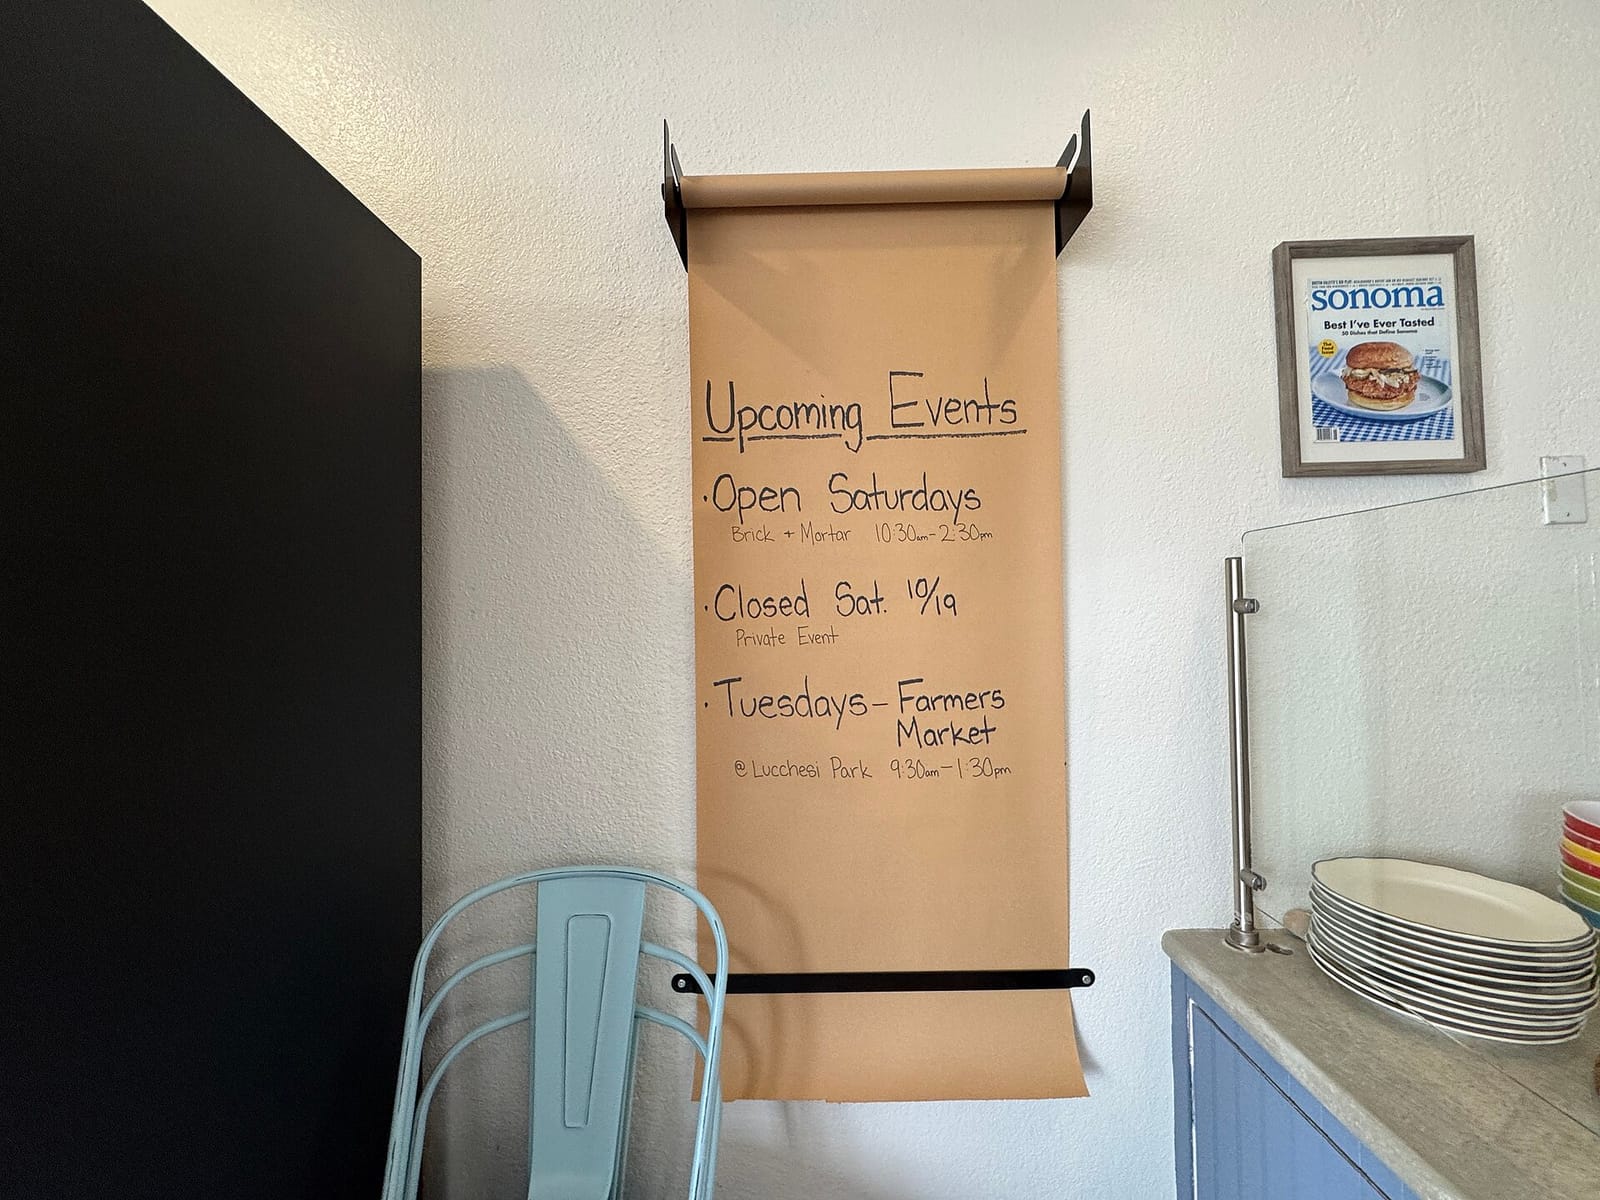 Upcoming Events
·Open Saturdays
Brick + Mortar 10:30am-2:30pm
·Closed Sat. 10/19
Private Event
·Tuesdays-Farmers
Market
@ Lucchesi Park 9:30am-1:30pm
sonoma
Best I've Ever Tasted
50 Dishes that Define Sonoma
The
Food
Issue